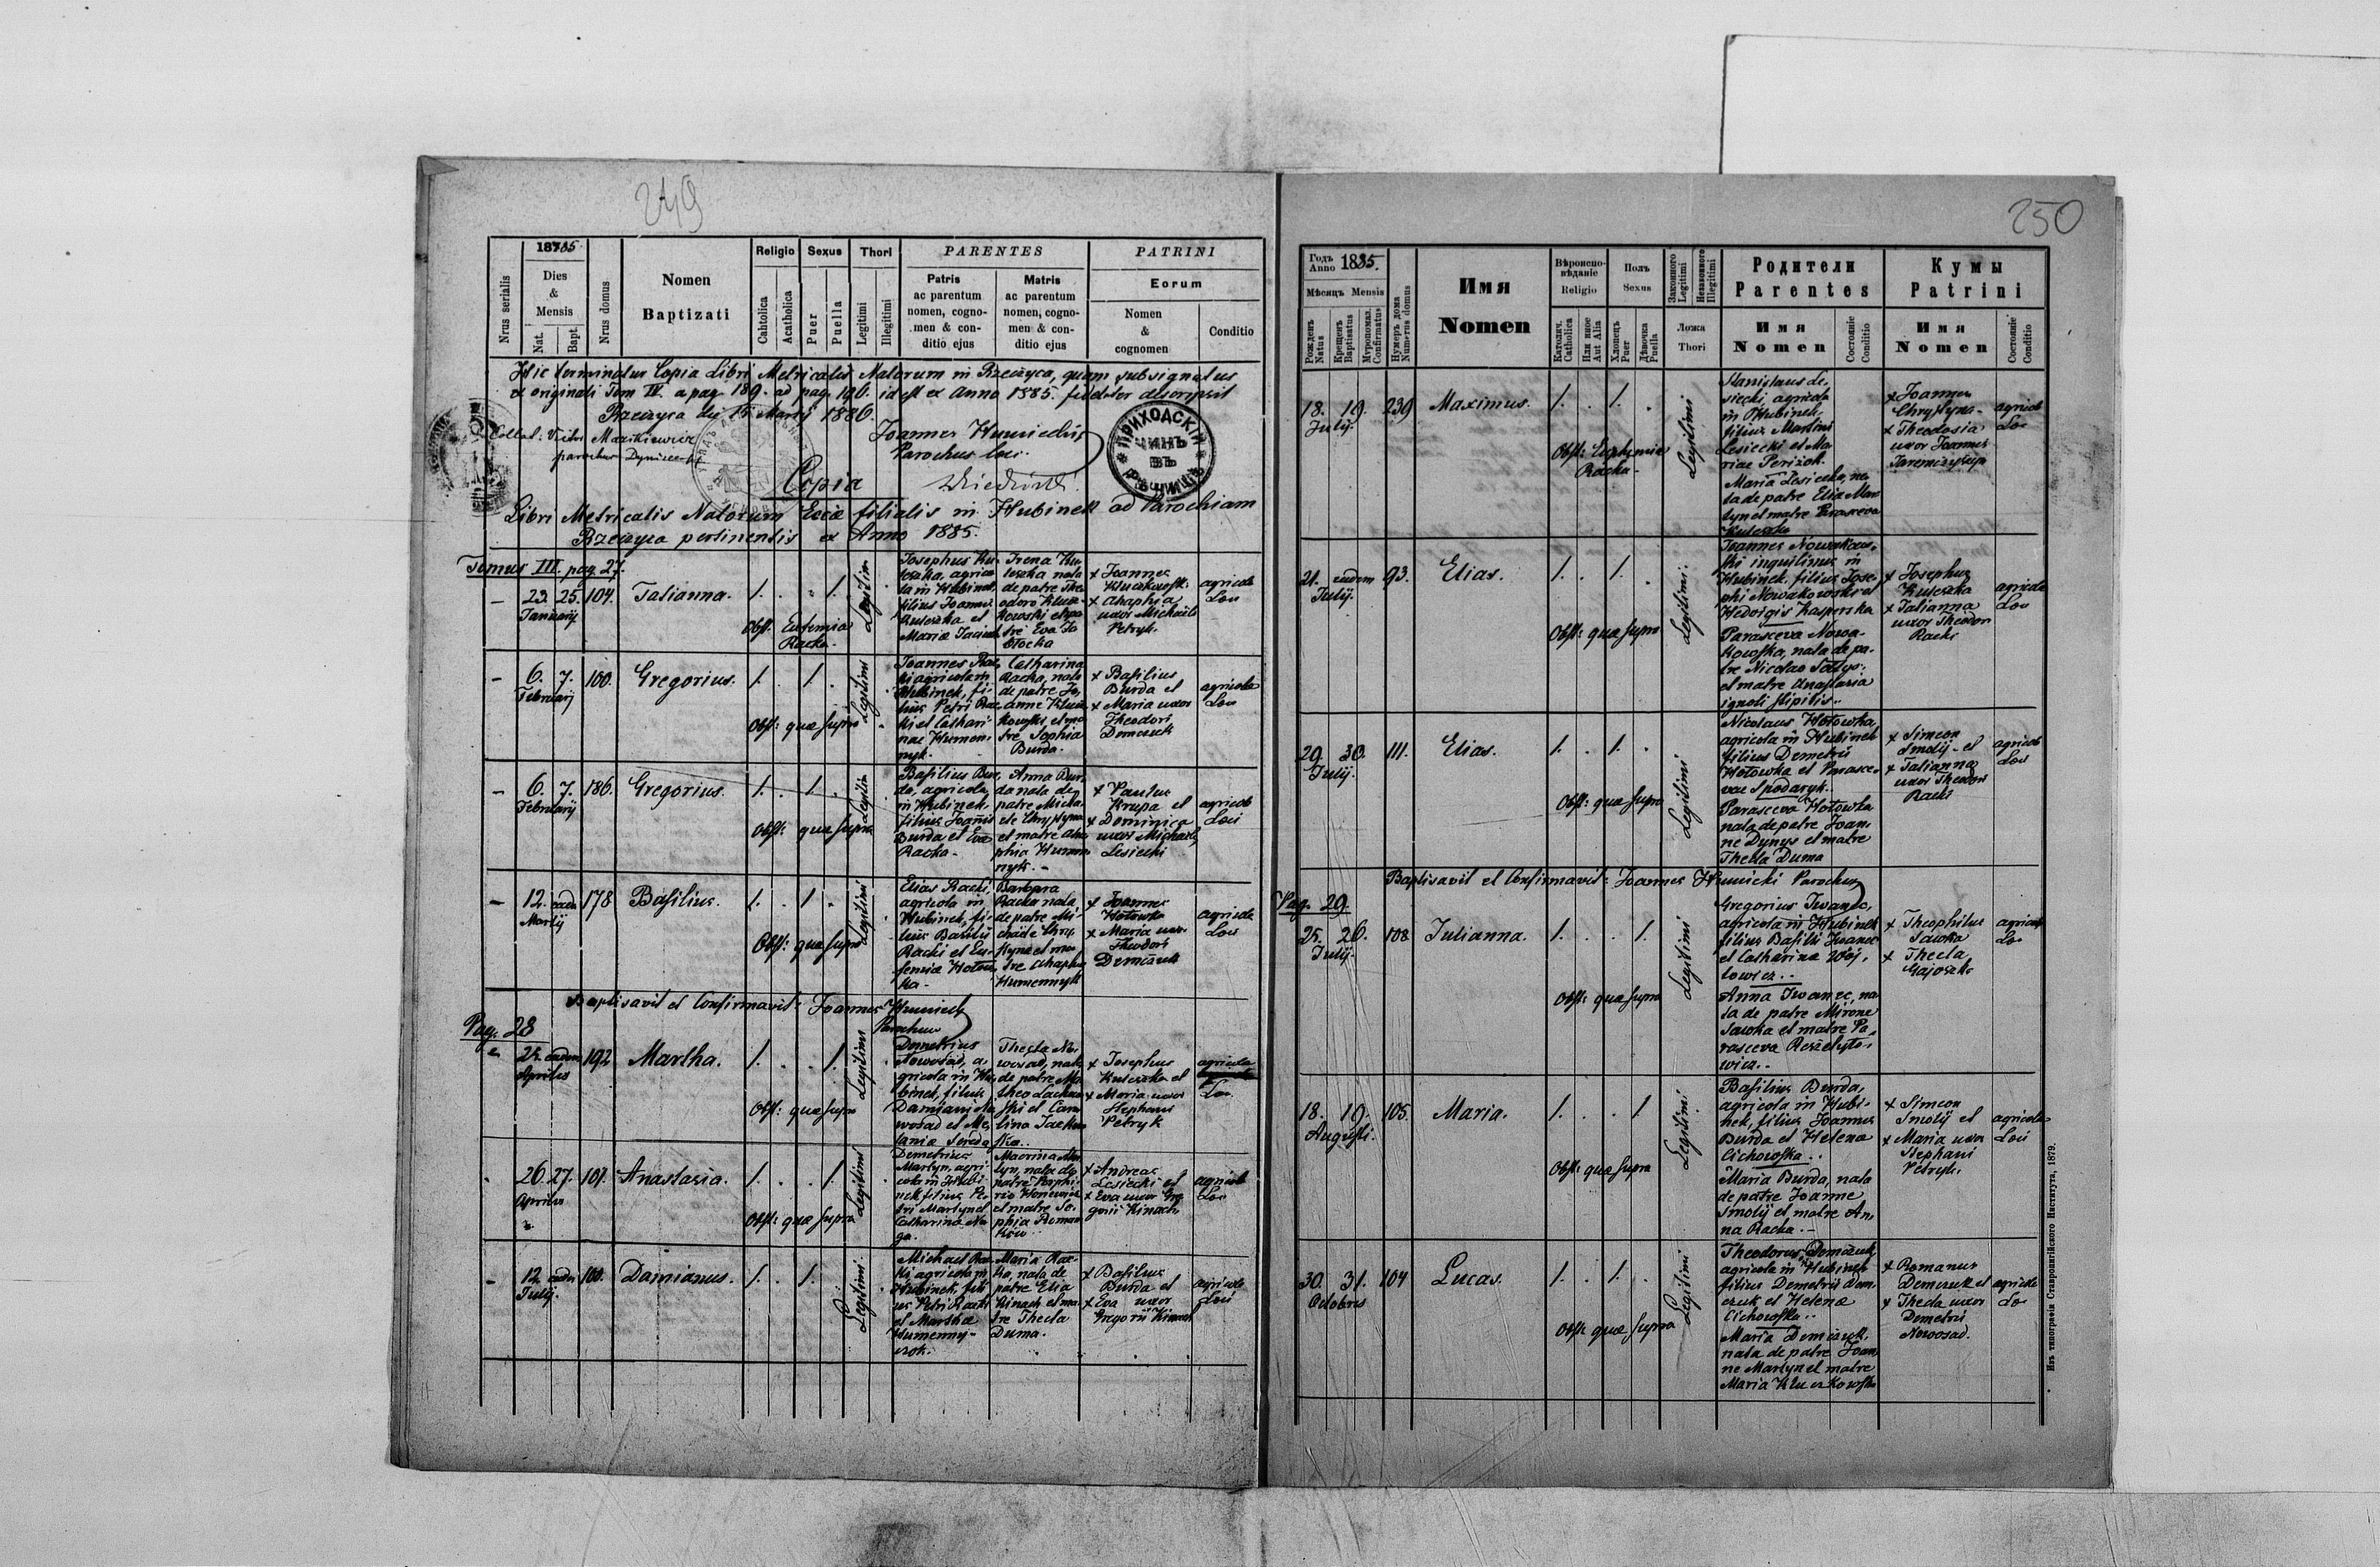 249
1885
Nrus serialis
Dies & Mensis
Nat.
Bapt.
Nrus domus
Nomen
Baptizati
Religio
Cahtolica
Acatholica
Sexus
Puer
Puella
Thori
Legitimi
Illegitimi
PARENTES
Patris
ac parentum
nomen, cogno-
men & con-
ditio ejus
Matris
ac parentum
nomen, cogno-
men & con-
ditio ejus
PATRINI
Eorum
Nomen
&
cognomen
Conditio
Hic terminatur Copia Libri Metricalis Natorum in Rzeczyca, quam subsignatus
ex originali Tom IV. a pag. 189. ad pag. 196. id est ex Anno 1885. fideliter descripsit
Rzeczyca die 15 Martij 1886.
Joannes Humiecki
Parochus loci.
ПРИХОДСКІЙ
ЧИНЪ
ВЪ
Copia
Libri Metricalis Natorum Eccae filialis in Hubinek ad Parochiam
Rzeczyca pertinentis ex Anno 1885.
Tomus III. pag. 27.
23. 25. 104. Tatianna. 1. . . 1.
Januarij
Obst. Eufemia
Racka.
Legitim
Josephus Ku-
leszka, agrico-
la in Hubinek,
filius Joannis
Kuleszka et
Irena Ku-
leszka nata
de patre The-
odoro Klucz-
kowski et ma-
tre Eva
+ Joannes
+ Ahaphia
uxor Michaeli
Petryk.
agricola
Loci
6. 7. 100. Gregorius. 1. . 1. .
Februarij
Obst: quae supra
Legitimi
Joannes Rac-
ki agricola in
Hubinek, fi-
lius Petri Rac-
ki et Cathari-
nae Humen-
nyk.
Catharina
Racka, nata
de patre Jo-
anne Klucz-
kowski, et ma-
tre Sophia
Burda.
+ Basilius
Burda et
+ Maria uxor
Theodori
Demczuk
agricola
Loci
6. 7. 186. Gregorius. 1. . 1. .
Februarij
Obst: quae supra
Legitim
Basilius Bur-
da, agricola,
in Hubinek,
filius Joannis
Burda et Eva
Racka.
Anna Bur-
da nata de
patre Micha-
ele Chrystyna
et matre Aha-
phia Humen-
nyk.
+ Paulus
Krupa et
+ Dominica
uxor Michaeli
Lesiecki
agricola
Loci
12. eadem 178 Basilius. 1. . 1 .
Martij
Obst: quae supra
Legitimi
Elias Racki,
agricola in
Hubinek, fi-
lius Basilii
Racki et Eu-
femia Hotow-
ka.
Barbara
Racka nata
de patre Mi-
chaele Chry-
styna et ma-
tre Ahaphia
Humennyk
+ Joannes
Hotowka
+ Maria uxor
Theodori
Demczuk
agricola
Loci
Baptisavit et Confirmavit: Joannes Humiecki
Parochus
Pag. 28
25. eadem 192 Martha. 1. . . 1.
Aprilis
Obst: quae supra
Legitimi
Demetrius
Nowosad, a-
gricola in Hu-
binek, filius
Damiani No-
wosad et Me-
lania Sereda
Thecla No-
wosad, nata
de patre Ma-
theo
+ Josephus
Kuleszka et
+ Maria uxor
Stephani
Petryk
agricola
Loci
26. 27. 101. Anastasia. 1. . . 1.
Aprilis
Obst: quae supra
Legitimi
Demetrius
Martyn, agri-
cola in Hubi-
nek filius Pe-
tri Martyn et
Catharina
Macrina Mar-
tyn, nata de
patre Porphi-
rio
et matre So-
phia Roman-
kow
+ Andreas
Lesiecki et
+ Eva uxor Gre-
gorii Kinach
agricola
Loci
12. eadem 100. Damianus. 1. . 1.
Julij.
Legitimi
Michael Rac-
ki agricola in
Hubinek, fili-
us Petri Racki
et Martha
Humenny-
czok.
Maria Rac-
ka, nata de
patre Elia
Kinach et ma-
tre Thecla
Duma.
+ Basilius
Burda et
+ Eva uxor
Gregorii Kinach
agricola
Loci
250
Годъ Anno 1885.
Мѣсяцъ Mensis
Рожденъ Natus
Крещенъ Baptisatus
Мѵропомаз. Confirmatus
Нумеръ дома Numerus domus
Имя
Nomen
Вѣроиспо-
вѣданіе
Religio
Католич. Catholica
Или иное Aut Alia
Полъ
Sexus
Хлопецъ Puer
Дѣвочка Puella
Законного Legitimi
Незаконного Illegitimi
Ложа
Thori
Родители
Parentes
Имя
Nomen
Состояніе Conditio
Кумы
Patrini
Имя
Nomen
Состояніе Conditio
18. 19. 239 Maximus. 1. . 1. .
Julij.
Obst: Euphemia
Racka.
Legitimi
Stanislaus Le-
siecki, agricola
in Hubinek,
filius Martini
Lesiecki et Ma-
riae Perizok.
Maria Lesiecka, na-
ta de patre Elia Mar-
tyn et matre Parasceva
Kuleszka
+ Joannes
Chrystyna.
+ Theodosia
uxor Joannis
agricola
Loci
21. eadem 93. Elias. 1. . 1. .
Julij.
Obst: quae supra
Legitimi.
Joannes Nowakow-
ski inquilinus in
Hubinek, filius Jose-
phi Nowakowski et
Hedvigis Kasperska
Parasceva Nowa-
kowska, nata de pa-
tre Nicolao
et matre Anastasia
ignoti stipitis.
+ Josephus
Kuleszka
+ Tatianna
uxor Theodori
Racki
agricola
Loci
29. 30. 111. Elias. 1. . 1. .
Julij.
Obst: quae supra
Legitimi
Nicolaus Hotowka,
agricola in Hubinek
filius Demetrii
Hotowka et Parasce-
vae Spodaryk.
Parasceva Hotowka
nata de patre Joan-
ne Dynys et matre
Thecla Duma
+ Simeon
Smolij et
+ Tatianna
uxor Theodori
Racki
agricola
Loci
Baptisavit et Confirmavit: Joannes Humiecki Parochus
Pag. 29.
25. 26. 108 Julianna. 1. . . 1.
Julij.
Obst: quae supra
Legitimi
Gregorius Iwanec,
agricola in Hubinek
filius Basilii Iwanec
et Catharina Wój-
towicz.
Anna Iwanec, na-
ta de patre Mirone
Sawka et matre Pa-
rasceva
+ Theophilus
Sawka
+ Thecla
agricola
Loci
18. 19. 105. Maria. 1. . . 1
Augusti.
Obst: quae supra
Legitimi.
Basilius Burda,
agricola in Hubi-
nek, filius Joannis
Burda et Helena
Cichowska.
Maria Burda, nata
de patre Joanne
Smolij et matre An-
na Racka.
+ Simeon
Smolij et
+ Maria uxor
Stephani
Petryk.
agricola
Loci
30. 31. 104 Lucas. 1. . 1. .
Octobris
Obst: quae supra
Legitimi
Theodorus Demczuk,
agricola in Hubinek
filius Demetrii Dem-
czuk et Helena
Cichowska.
Maria Demczuk,
nata de patre Joan-
ne Martyn et matre
Maria Kluczkowska
+ Romanus
Demczuk et
+ Thecla uxor
Demetrii
Nowosad.
agricola
Loci
Изъ типографіи Ставропигійского Института, 1879.